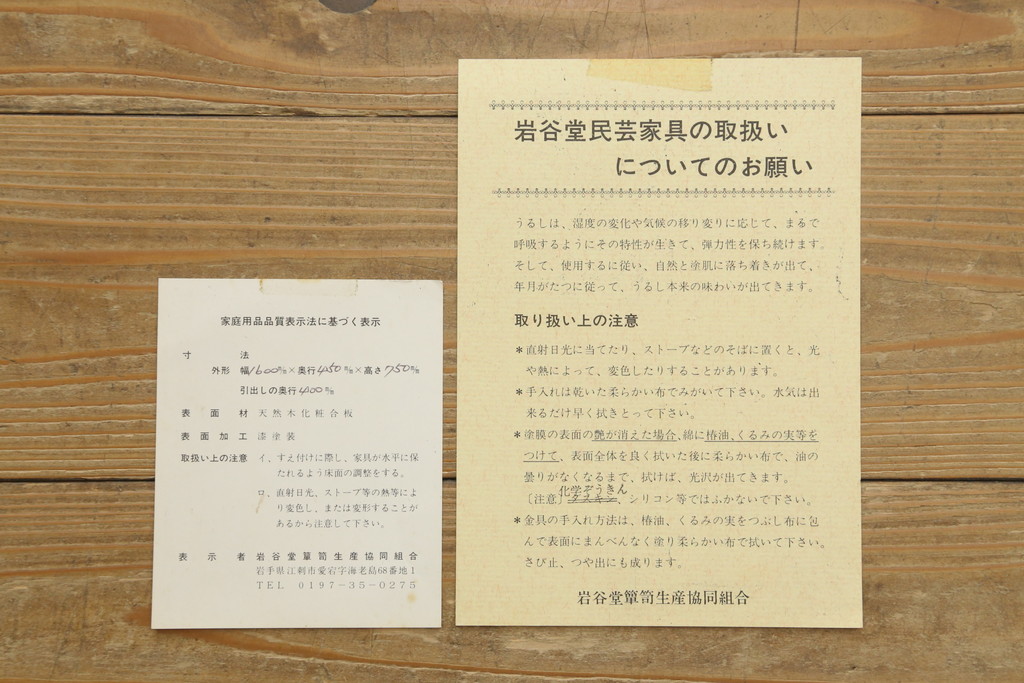 家庭用品品質表示法に基づく表示
寸法
外形 幅1600㎜×奥行450㎜×高さ750㎜
引出しの奥行400㎜
表面材 天然木化粧合板
表面加工 漆塗装
取扱い上の注意 イ、すえ付けに際し、家具が水平に保
たれるよう床面の調整をする。
ロ、直射日光、ストーブ等の熱等によ
り変色し、または変形することが
あるから注意して下さい。
表示者 岩谷堂簞笥生産協同組合
岩手県江刺市愛宕字海老島68番地1
TEL 0197-35-0275
岩谷堂民芸家具の取扱い
についてのお願い
うるしは、湿度の変化や気候の移り変りに応じて、まるで
呼吸するようにその特性が生きて、弾力性を保ち続けます。
そして、使用するに従い、自然と塗肌に落ち着きが出て、
年月がたつに従って、うるし本来の味わいが出てきます。
取り扱い上の注意
＊直射日光に当てたり、ストーブなどのそばに置くと、光
や熱によって、変色したりすることがあります。
＊手入れは乾いた柔らかい布でみがいて下さい。水気は出
来るだけ早く拭きとって下さい。
＊塗膜の表面の艶が消えた場合、綿に椿油、くるみの実等を
つけて、表面全体を良く拭いた後に柔らかい布で、油の
曇りがなくなるまで、拭けば、光沢が出てきます。
化学ぞうきん
〔注意〕ダスキン、シリコン等ではふかないで下さい。
＊金具の手入れ方法は、椿油、くるみの実をつぶし布に包
んで表面にまんべんなく塗り柔らかい布で拭いて下さい。
さび止、つや出にも成ります。
岩谷堂簞笥生産協同組合